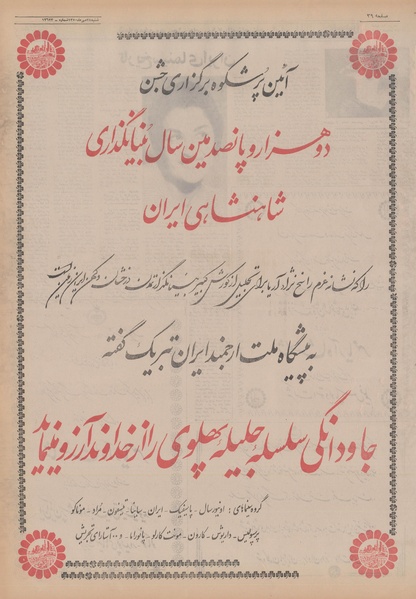 صفحه ۳۶
آئین پرشکوه برگزاری جشن
دوهزار و پانصدمین سال بنیانگذاری
شاهنشاهی ایران
را که نشانه عزم راسخ نژاد آریا برای تجلیل از کورش کبیر بنیانگذار تمدن درخشان و کهن ایران زمین است
به پیشگاه ملت ارجمند ایران تبریک گفته
جاودانگی سلسله جلیله پهلوی را از خداوند آرزو مینماید
گروه سینماهای : ادیورسال - پاسیفیک - ایران - پانیذ - تیسفون - مراد - موناکو
پرسپولیس - داریوش - کارون - مونت کارلو - پانوراما - و ... آستارای تجریش